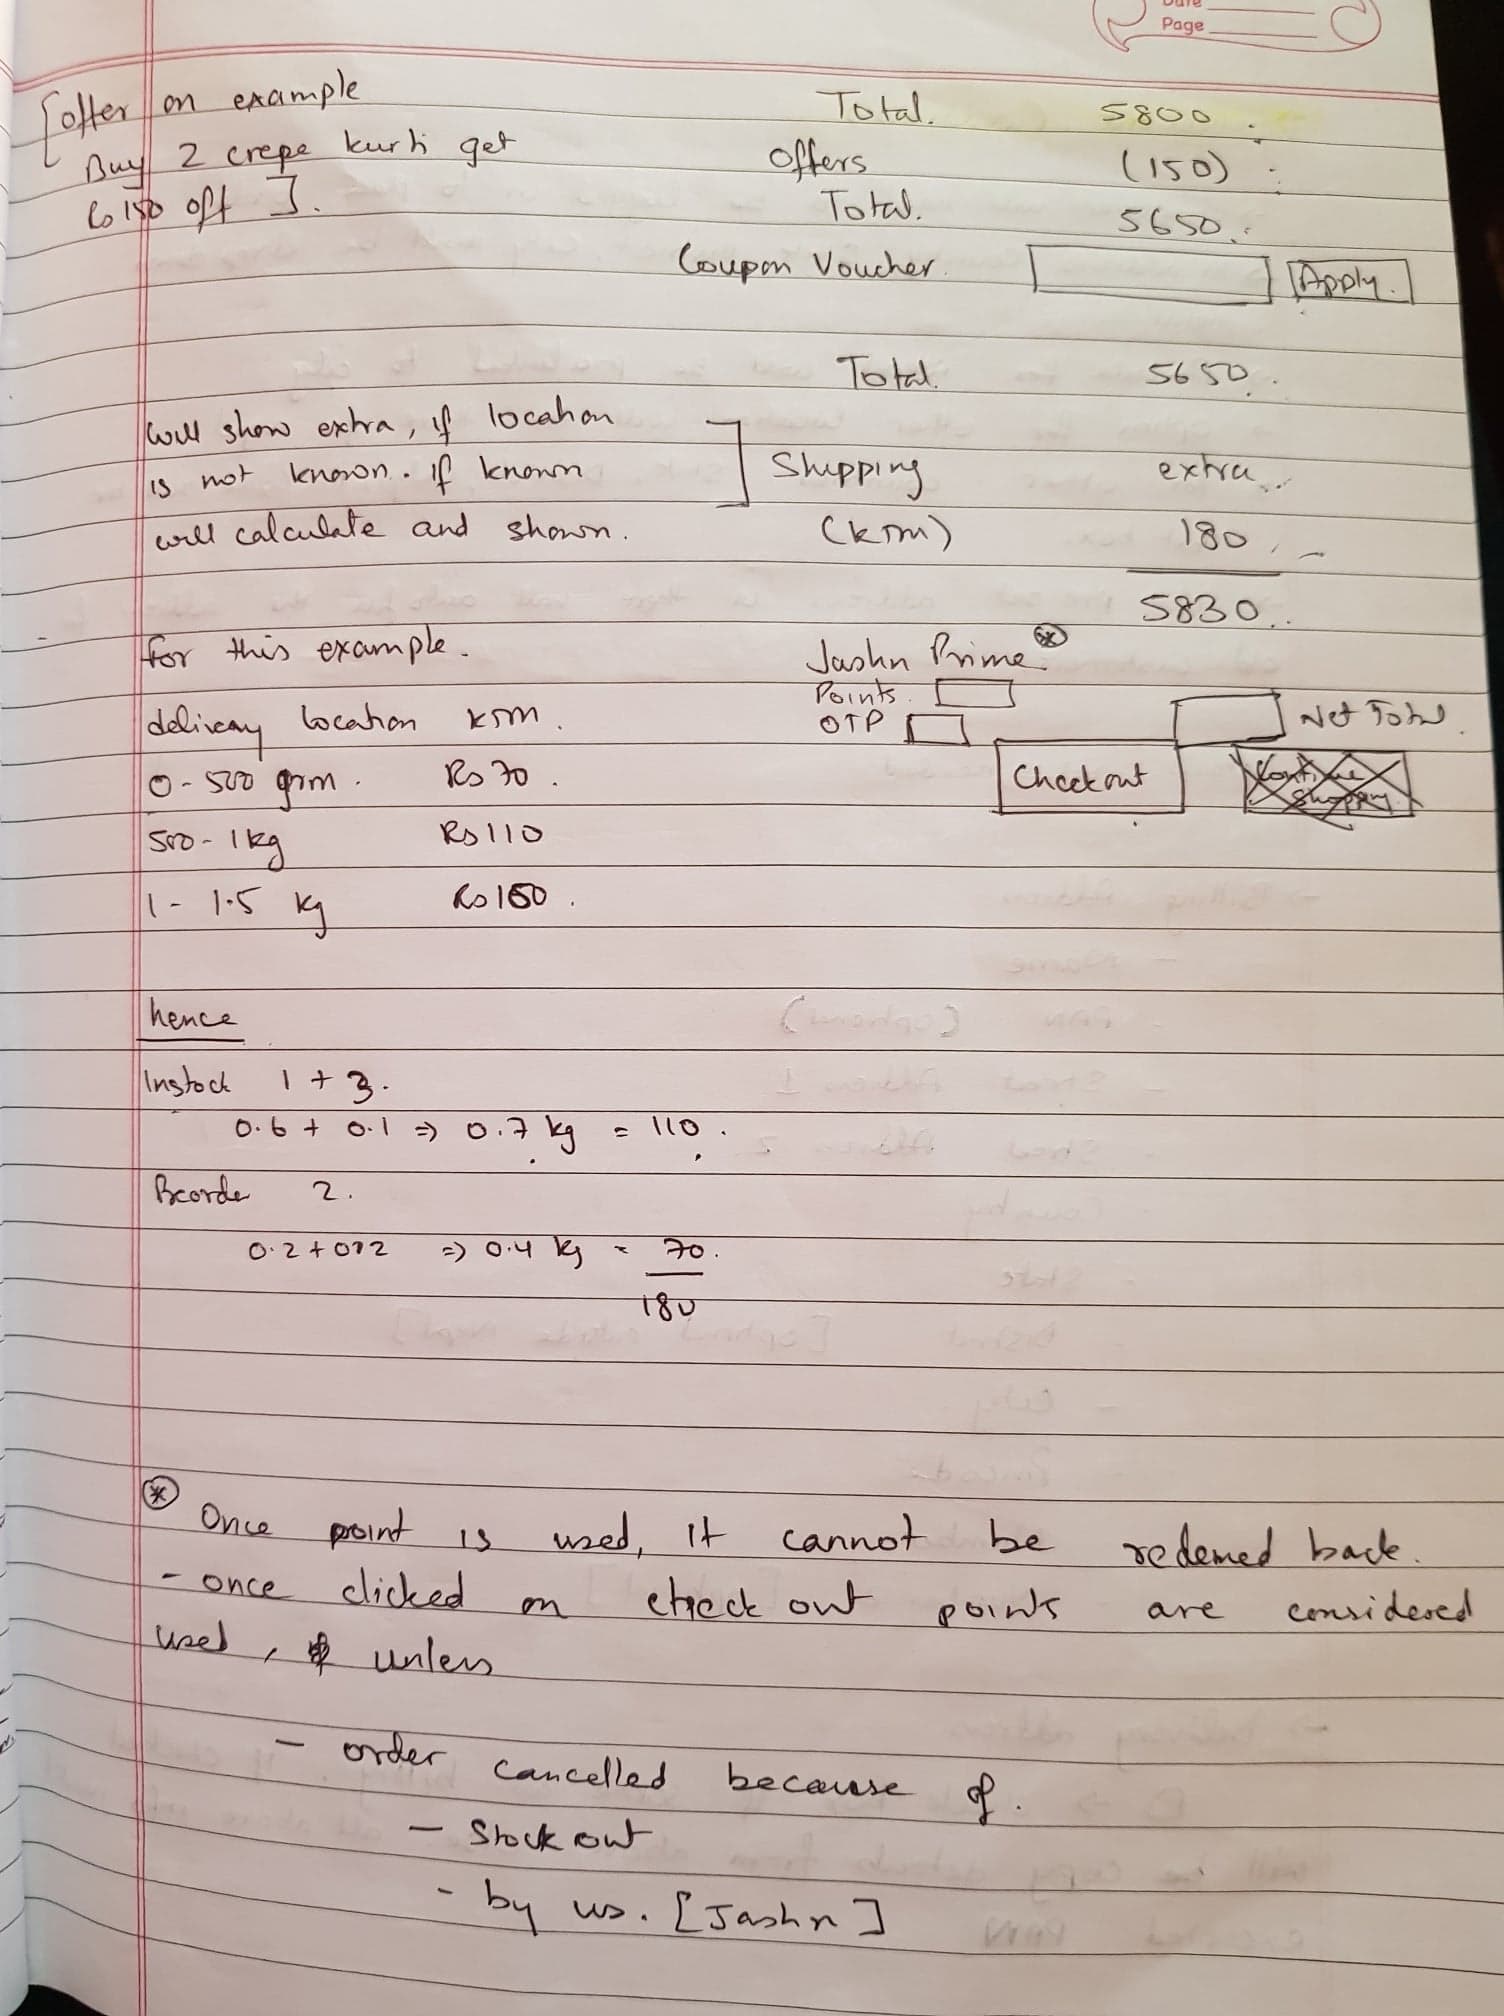 Date
Page
[offer on example
Buy 2 crepe kurti get
Rs 150 off ].
Total. 5800.
Offers (150)
Total. 5650.
Coupon Voucher. Apply.
Total. 5650.
Will show extra, if location
is not known. if known
will calculate and shown.
Shipping extra
(ktm) 180
5830
for this example.
Jashn Prime *
Points.
OTP
Net Total
Checkout
Continue
Shopping
delivery location ktm.
0 - 500 grm. Rs 70.
500 - 1 kg Rs 110
1 - 1.5 kg Rs 150.
hence
Instock 1 + 3.
0.6 + 0.1 ⇒ 0.7 kg = 110.
2.
⇒ 0.4 kg = 70.
180
* Once point is used, it cannot be redemed back.
- once clicked on check out points are considered
used, unless
- order cancelled because of.
- Stock out
- by us. [Jashn]